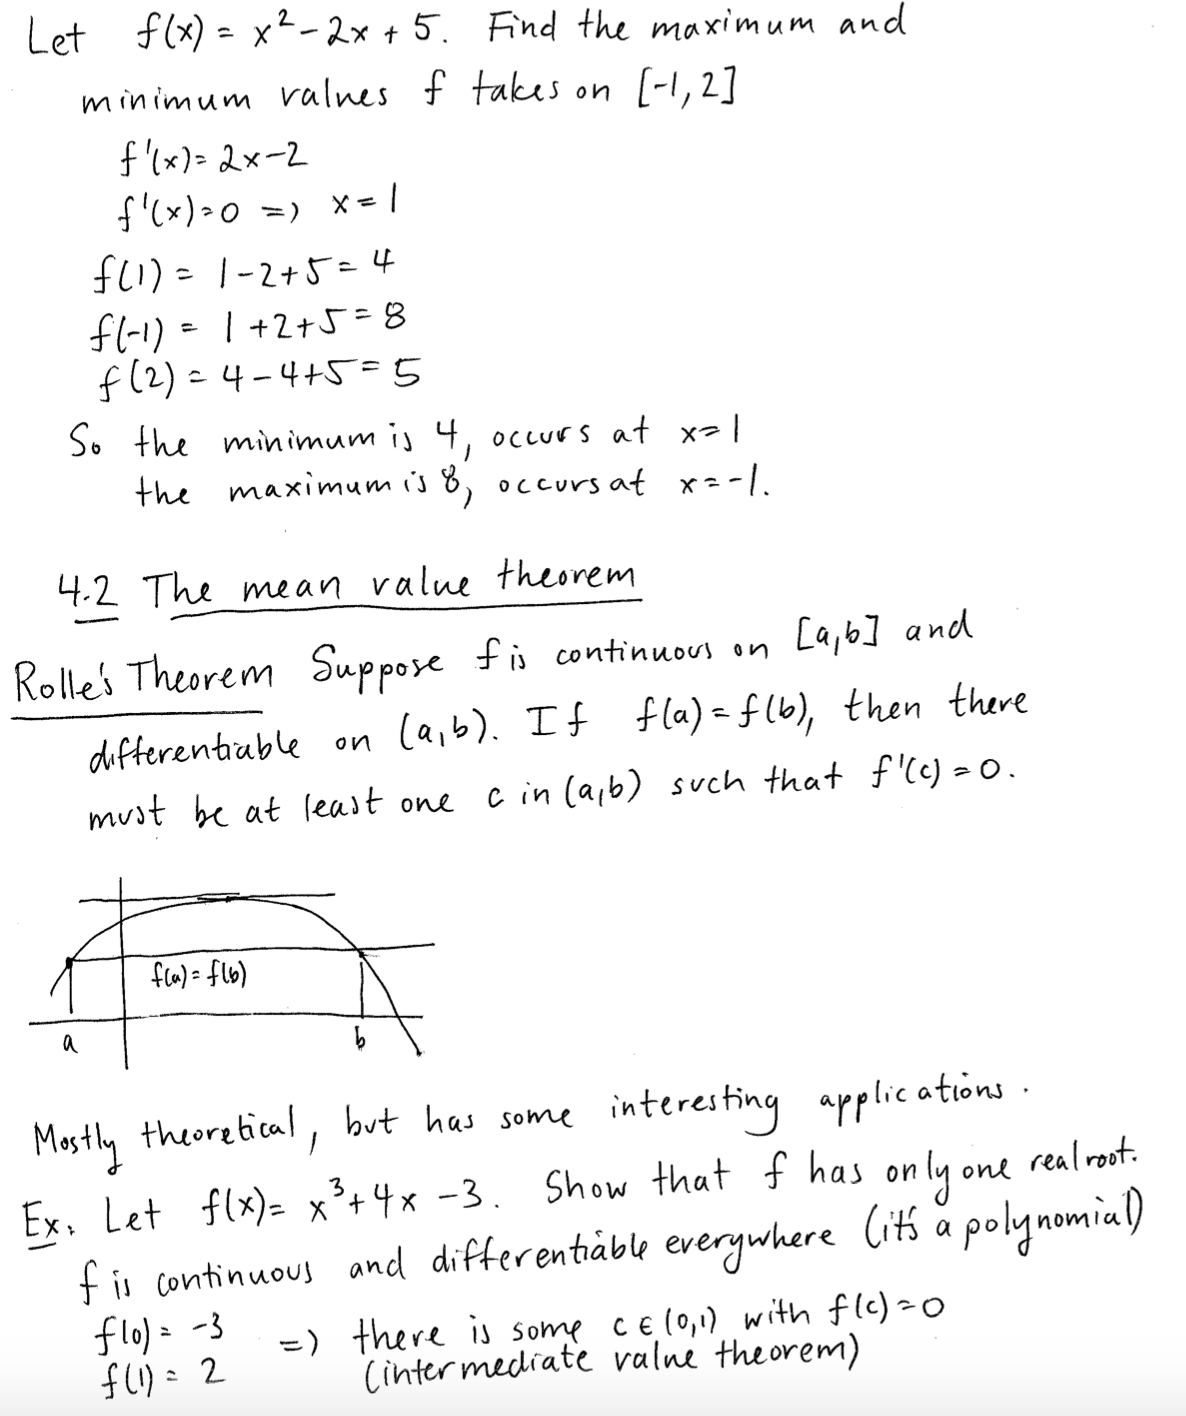 Let f(x) = x² - 2x + 5. Find the maximum and
minimum values f takes on [-1, 2]
f'(x) = 2x-2
f'(x) = 0 => x = 1
f(1) = 1 - 2 + 5 = 4
f(-1) = 1 + 2 + 5 = 8
f(2) = 4 - 4 + 5 = 5
So the minimum is 4, occurs at x = 1
the maximum is 8, occurs at x = -1.
4.2 The mean value theorem
Rolle's Theorem Suppose f is continuous on [a,b] and
differentiable on (a,b). If f(a) = f(b), then there
must be at least one c in (a,b) such that f'(c) = 0.
f(a) = f(b)
a b
Mostly theoretical, but has some interesting applications.
Ex. Let f(x) = x³ + 4x - 3. Show that f has only one real root.
f is continuous and differentiable everywhere (it's a polynomial)
f(0) = -3 => there is some c ∈ (0,1) with f(c) = 0
f(1) = 2 (intermediate value theorem)